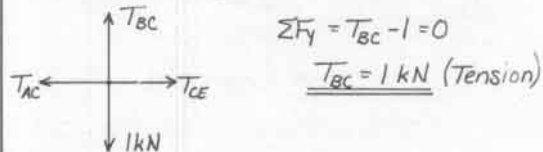 T_BC
T_AC
T_CE
1 kN
ΣF_y = T_BC - 1 = 0
T_BC = 1 kN (Tension)